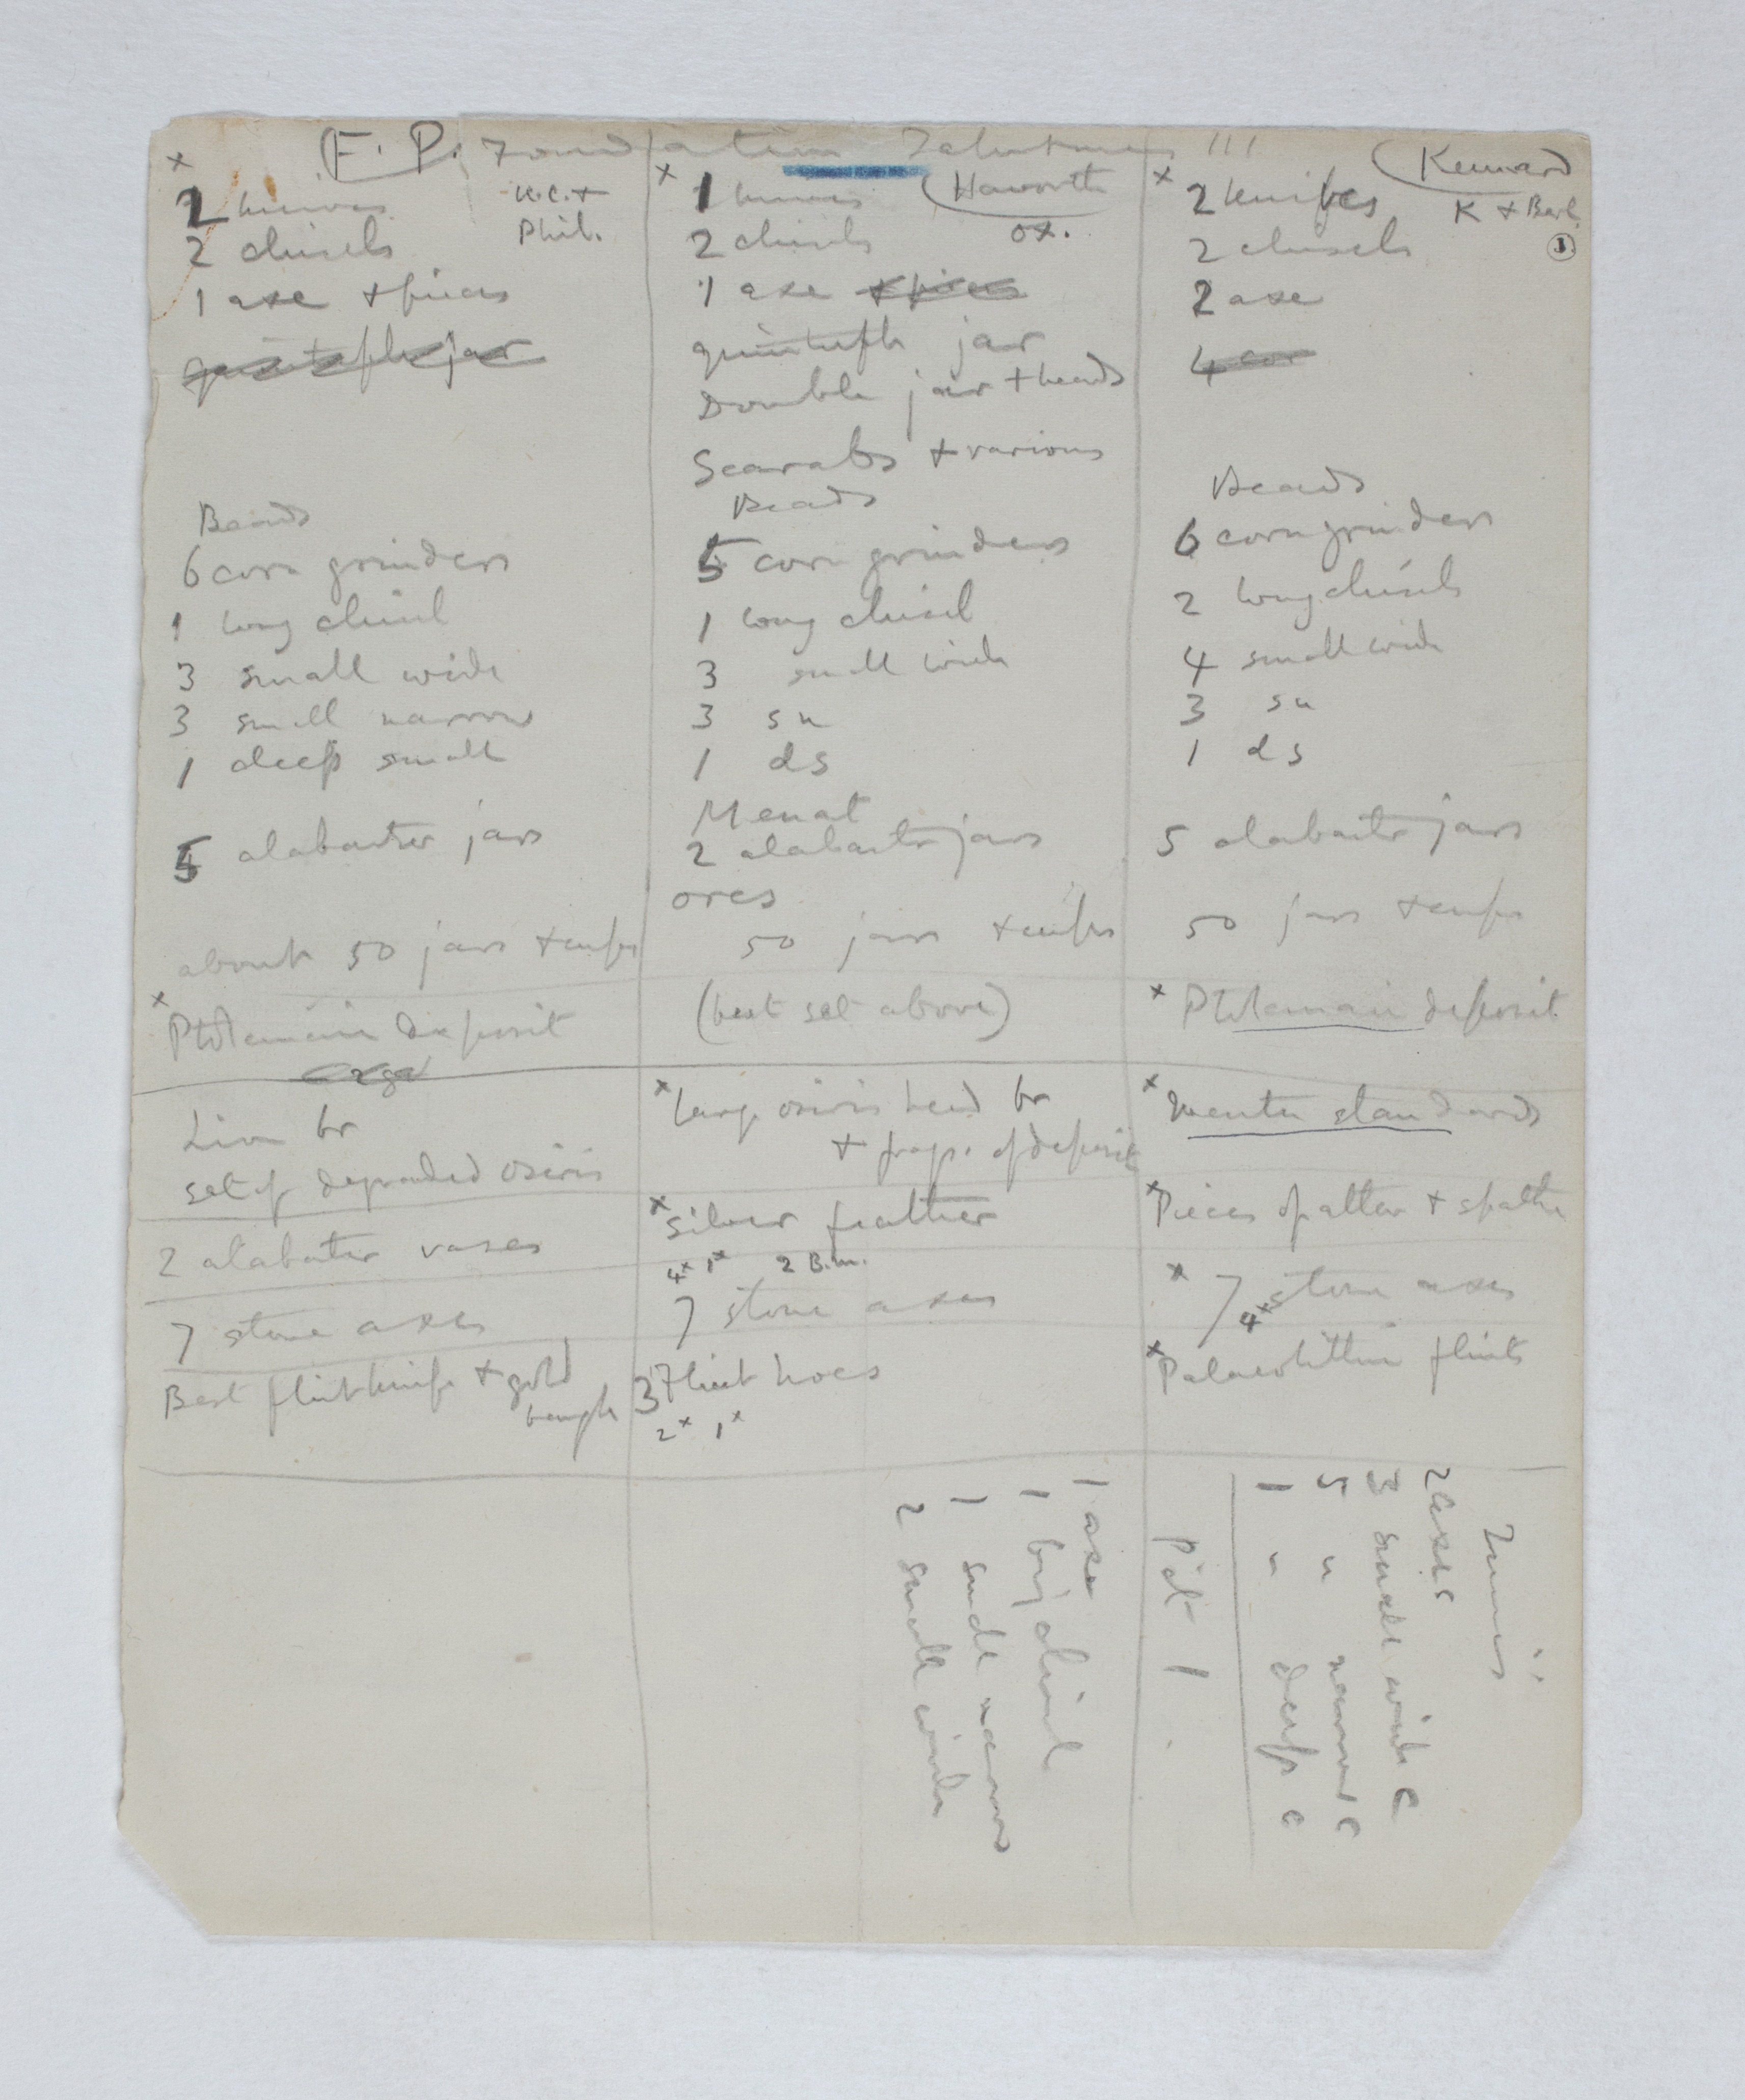 F. P. Foundation Tahutmes III
x
2 knives
U.C. +
Phil.
2 chisels
1 axe + pieces
quintuple jar
Beads
6 corn grinders
1 long chisel
3 small wide
3 small narrow
1 deep small
5 alabaster jars
about 50 jars + cups
x
Ptolemaic deposit
Lion br
set of degraded osiris
2 alabaster vases
7 stone axes
Best flint knife + gold
x
1 knives
Haworth
ox.
2 chisels
1 axe + pieces
quintuple jar
Double jar + beads
Scarabs + various
Beads
5 corn grinders
1 long chisel
3 small wide
3 sn
1 ds
Menat
2 alabaster jars
ores
50 jars + cups
(best set above)
x Large osiris head br
+ frags. of deposit
x silver feather
4x 1x 2 B.M.
7 stone axes
3 Flint hoes
2x 1x
Kennard
K + Berl.
1
x
2 knifes
2 chisels
2 axe
4 cor
Beads
6 corn grinders
2 long chisels
4 small wide
3 sn
1 ds
5 alabaster jars
50 jars + cups
x Ptolemaic deposit
x
x Pieces of altar + spathe
x 7 stone axes
4x
x Palaeolithic flints
2 axes
3 small wide c
5 " narrow c
1 " deep c
1
1 axe
1 big chisel
1 small narrow
2 small wide